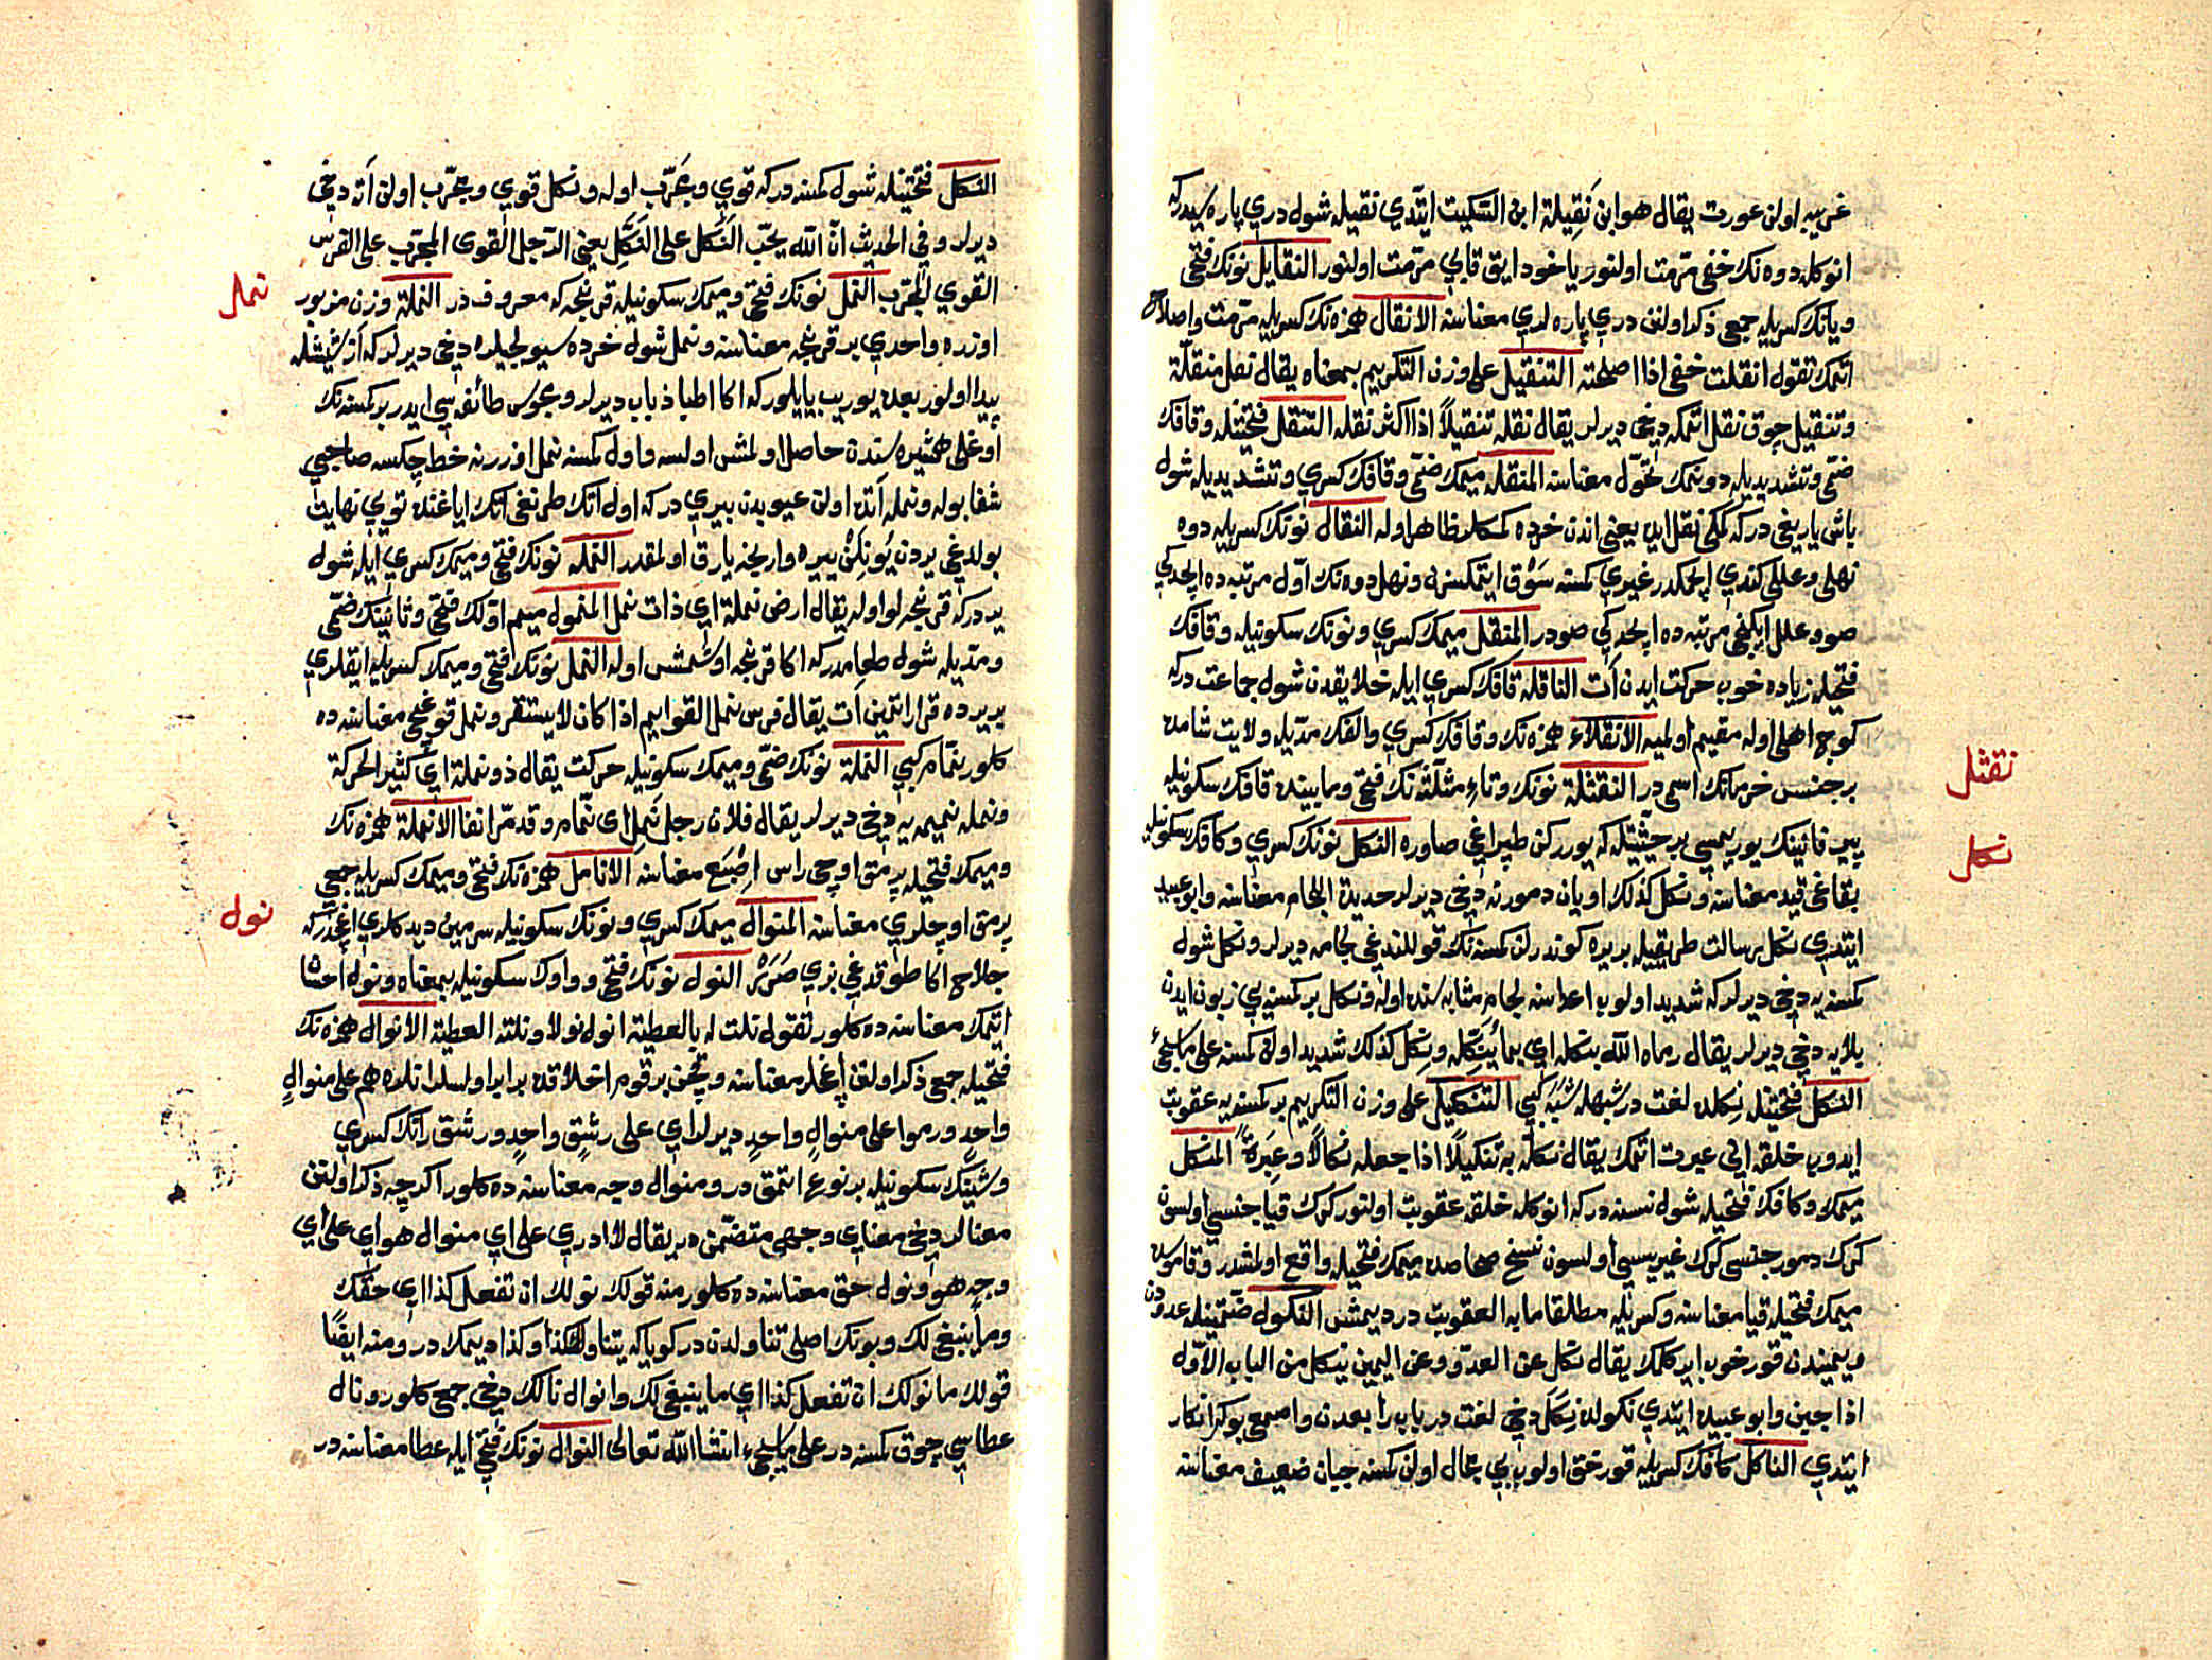 غريبه اولن عورت يقال هو ابن نَقِيلة ابن السّكيت ايتّدي نقيله شول دري پاره سيدركه
انوكله دوه نك خفى مرّمت اولنور ياخود ايق قابي مرّمت اولنور النقايل نونك فتحى
ويانك كسريله جمعى ذكر اولنن دري پاره لري معناسنه الانقال همزه نك كسريله مرّمت واصلاح
اتمك تقول انقلت خفى اذا اصلحته التنقيل على وزن التكريم بمعناه يقال نعل منقلّة
وتنقيل چوق نقل اتمكه دخى ديرلر يقال نقله تنقيلاً اذا اكثر نقله التنقل فتحتيله وقافك
ضمّى وتشديديله دونمك تحوّل معناسنه المنقله ميمك ضمّى وقافك كسري وتشديديله شول
باش ياريغى دركه كمكى نقل ايده يعنى اندن خرده كمكلر ظاهر اوله النقال نونك كسريله دوه
نهلى وعللى كندي ايچمكدر غيري كمسنه سَوْق ايتمكسزن ونهل دوه نك اوّل مرتبه ده ايچدكي
صو وعلل ايكنجى مرتبه ده ايچدكي صودر المنقل ميمك كسري ونونك سكونيله وقافك
فتحيله زياده خوب حركت ايدن اَت الناقله قافك كسري ايله خلايقدن شول جماعت دركه
كوچه اهلى اوله مقيم اولميه الانقلاء همزه نك وقافك كسري والفك مدّيله ولايت شامده
بر جنس خرمانك اسمى در النقثلة نونك وثاء مثلّثه نك فتحى ومابينده قافك سكونيله
پير فانينك يوريمسى بر حيثيتله كه يورركن طپراغى صاوره النكل نونك كسري وكافك سكونيله
بقاغى قيد معناسنه ونكل كذلك اويان دمورنه دخى ديرلر حديدة اللجام معناسنه وابو عبيد
ايتدي نكل رسالت طريقيله بريره كوندرلن كمسنه نك قوللندغى لجامه ديرلر ونكل شول
كمسنه يه دخى ديرلر كه شديد اولوب اعداسنه لجام مثابه سنده اوله ونكل بر كمسنه يي زبون ايدن
بلايه دخى ديرلر يقال رماه الله بنكله اي بما يُنَكّله ونكل كذلك شديد اولن كمسنه على ماسيجئ
النكل فتحتيله نِكلده لغت در شبهله شَبَه كبي التنكيل على وزن التكريم بر كمسنه يه عقوبت
ايدوب خلقه اني عبرت اتمك يقال نكل به تنكيلاً اذا جعله نكالاً وعِبَرةً المنكل
ميمك وكافك فتحيله شول نسنه دركه انوكله خلقه عقوبت اولنور كرك قيا جنسي اولسون
كرك دمور جنسى كرك غيريسي اولسون نسخ صحاحده ميمك فتحيله واقع اولمشدر وقاموسده
ميمك فتحيله قيا معناسنه وكسريله مطلقا ما به العقوبت در ديمشس النكول ضمّتيله عدودن
ويميندن قورخوب ابر كلمك يقال نكل عن العدوّ وعن اليمين ينكل من الباب الاوّل
اذا جبن وابو عبيده ايتدي نكولده نَكَل دخى لغت در باب رابعدن واصمعى بوكه انكار
ايتدي الناكل كافك كسريله قورخق اولوب بي مجال اولن كمسنه جبان ضعيف معناسنه
نقثل
نكل
النكل فتحتيله شول كمسنه دركه قوي ومجَرّب اوله ونكل قوي ومجرّب اولن اَته دخى
ديرلر وفي الحديث انّ الله يحبّ النَّكَل على النَّكَلِ يعنى الرّجل القوى المجرّب على الفرس
القوي المجرّب النمل نونك فتحى وميمك سكونيله قرنجه كه معروفدر النملة وزن مزبور
اوزره واحدي بر قرنجه معناسنه ونمل شول خرده سيولجيلره دخى ديرلر كه آز شيشله
پيدا اولنور بعده يوريب ياييلور كه اكا اطبا ذباب ديرلر ومجوس طائفه سي ايدر بر كمسنه نك
اوغلى همشيره سندن حاصل اولمش اولسه و اول كمسنه نمل اوزرينه خط چكسه صاحبي
شفا بوله ونمله آتده اولن عيوبدن بيري دركه اول آتك طرنغى اتك اياغنده توي نهايت
بولدغى يردن يُونِكنْ ييره وارنجه يارق اولمقدر النمله نونك فتحى وميمك كسري ايله شول
ير دركه قرنجه لو اوله يقال ارض نملة اي ذات نمل المنمول ميم اوّلك فتحى وثانينك ضمّى
ومدّيله شول طعامدركه اكا قرنجه اوشمش اوله النمل نونك فتحى وميمك كسريله ايقلري
بر يرده قرار اتمين اَت يقال فرس نمل القوايم اذا كان لا يستقر ونمل قوغجى معناسنه ده
كلور نمّام كبي النملة نونك ضمّى وميمك سكونيله حركت يقال ذو نملة اي كثير الحركة
ونمله نميمه يه دخى ديرلر يقال فلان رجل نَمِل اي نمّام وقد مرّ انفا الانملة همزه نك
وميمك فتحيله پرمق اوجى راس اِصْبَع معناسنه الانامل همزه نك فتحى وميمك كسريله جمعى
پرمق اوجلري معناسنه المنوال ميمك كسري ونونك سكونيله سرمين ديدكلري اغجدركه
جلاح اكا طوقدغى بزي صَرَرْ النول نونك فتحى وواوك سكونيله بمعناه ونول احسان
ايتمك معناسنه ده كلور تقول نلت له بالعطية انول نولا ونلته العطية الانوال همزه نك
فتحيله جمع ذكر اولنن اغجلر معناسنه وقچن بر قوم اخلاقده برابر اولسلر انلره هم على منوالٍ
واحدٍ ورموا على منوالٍ واحدٍ ديرلر اي على رشقٍ واحدٍ ورشق رانك كسري
وشينك سكونيله بر نوع اتمق در ومنوال وجه معناسنه ده كلور اكرچه ذكر اولنن
معنالر دخى معناي وجهى متضمّن در يقال لا ادري على اي منوال هو اي على اي
وجهٍ هو ونول حق معناسنه ده كلور منه قولك نولك ان تفعل كذا اي حقّك
وما ينبغي لك وبونك اصلى تناولدن در كويا كه يتناولك كذا وكذا ديمك در ومنه ايضًا
قولك ما نولك ان تفعل كذا اي ما ينبغي لك وانوال نالك دخى جمع كلور ونال
عطاسي چوق كمسنه در على ماسيجيء انشا الله تعالى النوال نونك فتحى ايله عطا معناسنه در
نمل
نول